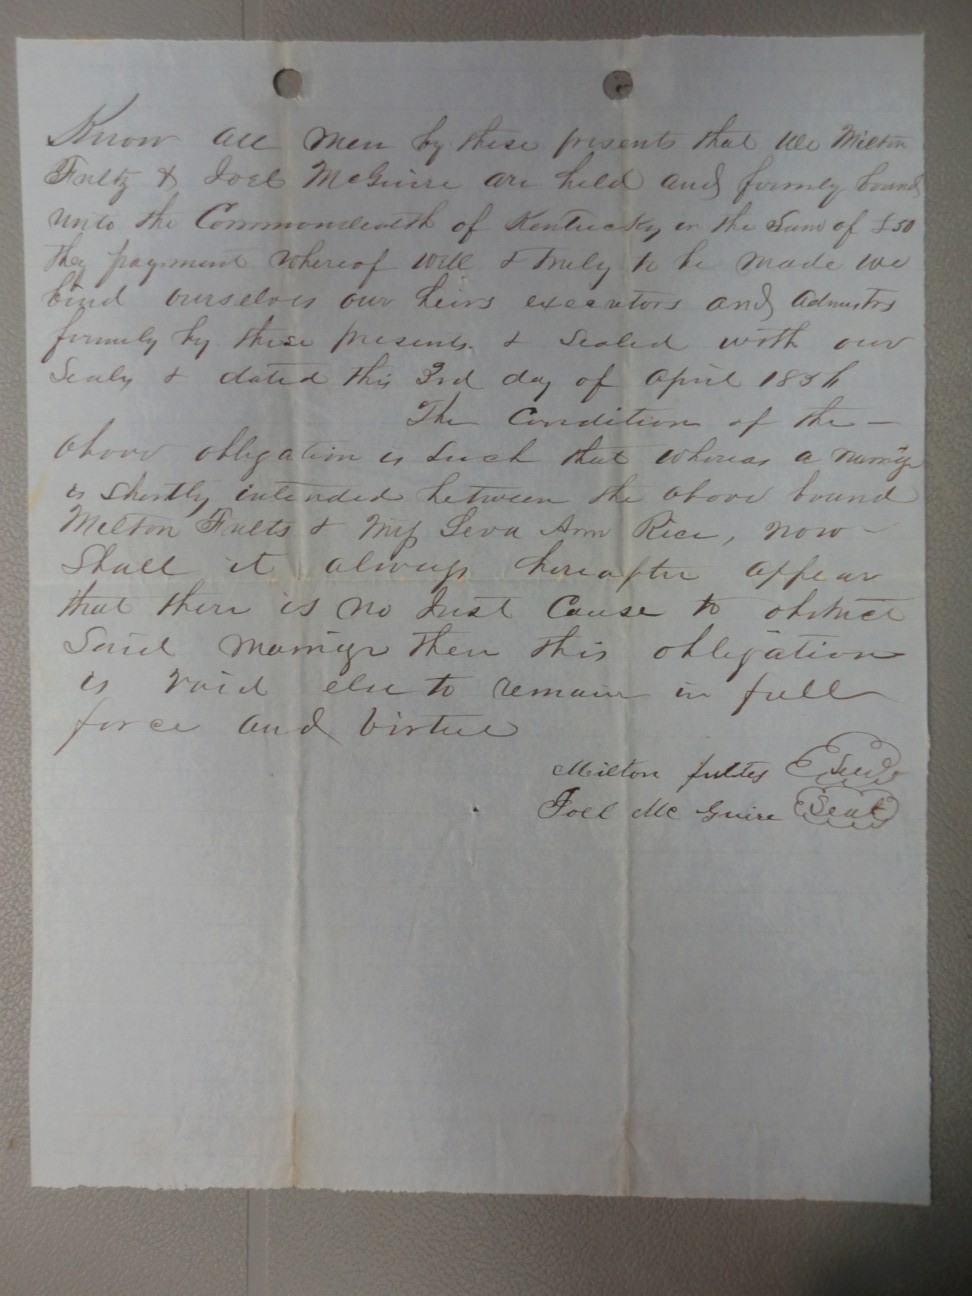 Know all men by these presents that we Milton
Fultz & Joel McGuire are held and firmly bound
unto the Commonwealth of Kentucky in the Sum of £50
they payment whereof will & truly to be made we
bind ourselves our heirs executors and admistrs
firmely by these presents & Sealed with our
Seals & dated this 3rd day of April 185
The Condition of the —
above obligation is Such that whereas a marrige
is shortly intended between the above bound
Milton Fults & Miss Leva Ann Rice, now —
Shall it always hereafter appear
that there is no Just Cause to obstruct
Said marrige then this obligation
is void else to remain in full
force and virtue
Milton fultes Seal
Joel Mc Guire Seal